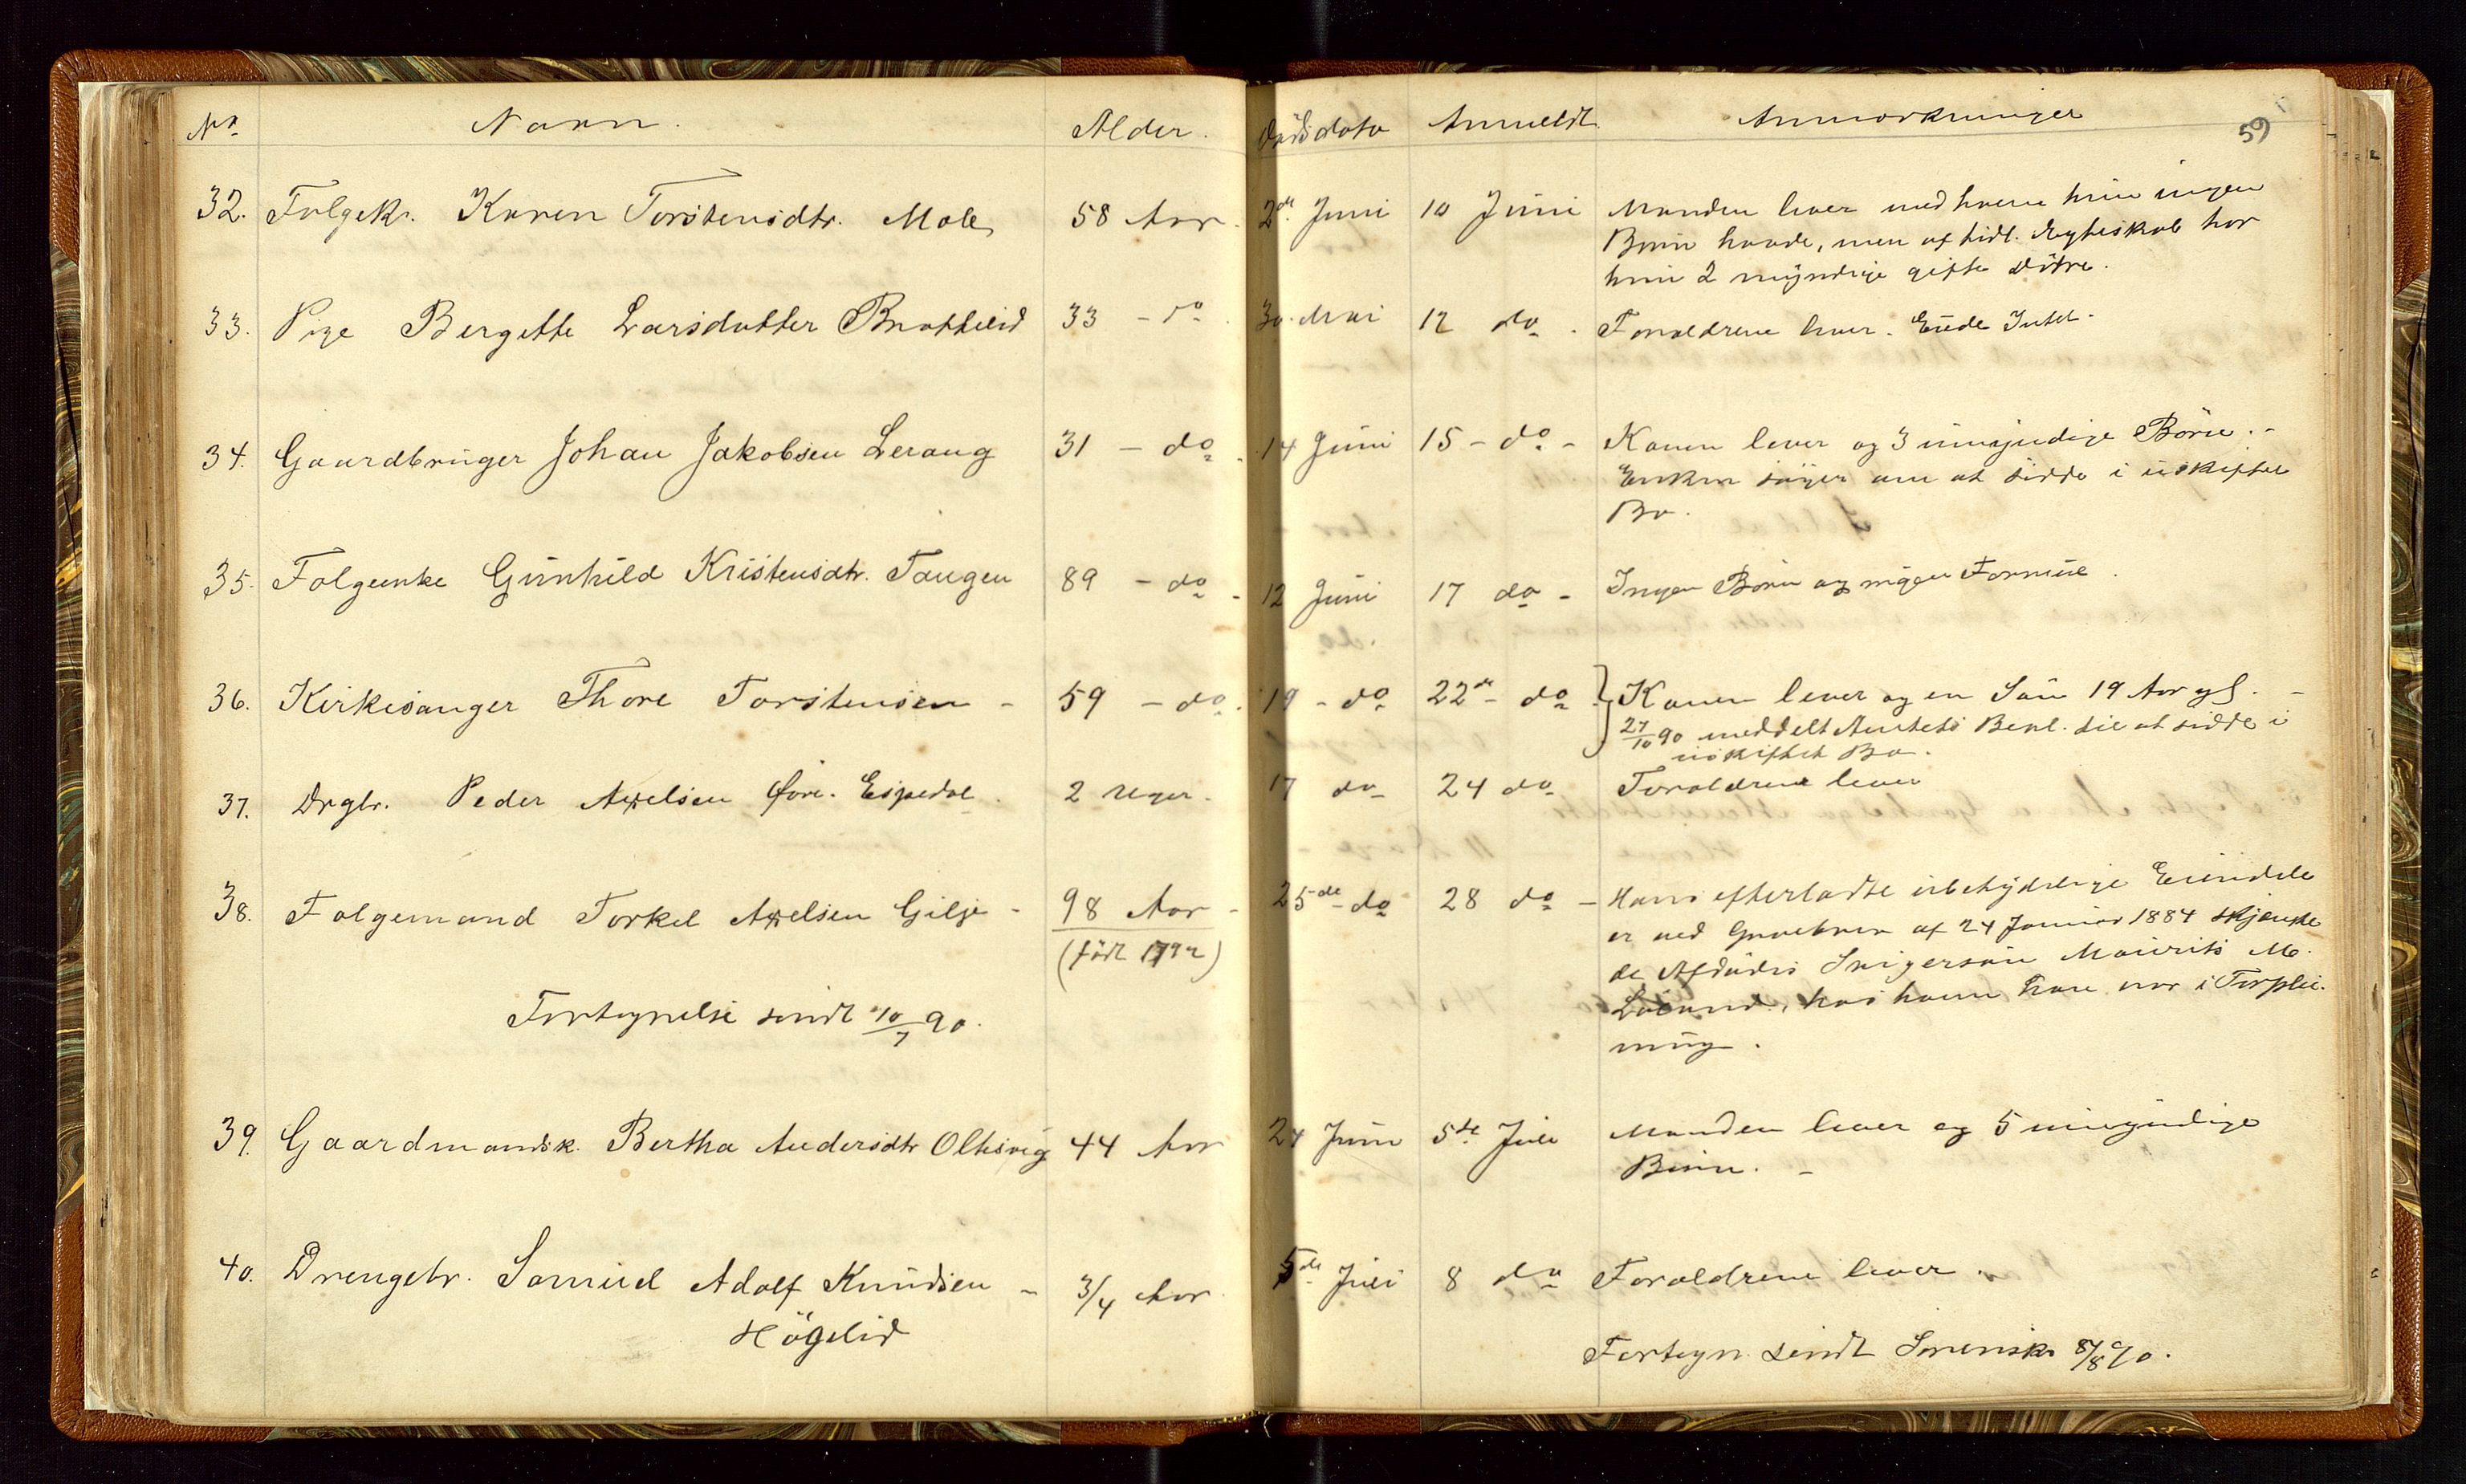 No. Navn. Alder. Dödsdato Anmeldt Anmærkninger 59
32. Folgek. Karen Torstensdtr. Mæle 58 Aar. 2de Juni 10 Juni Manden lever med hvem hun ingen
Börn havde, men af tidl. Ægteskab har
hun 2 myndige gifte Döttre.
33. Pige Bergitte Larsdatter Brattelid 33 - do 30. Mai 12 do. Forældrene lever. Eiede Intet.
34. Gaardbruger Johan Jakobsen Lerang 31 - do. 14 Juni 15 - do - Konen lever og 3 umyndige Börn. -
Enken söger om at sidde i uskiftet
Bo.
35. Folgeenke Gunhild Kristensdtr. Tangen 89 - do - 12 Juni 17 do - Ingen Börn og ingen Formue.
36. Kirkesanger Thore Torstensen - 59 - do. 19 - do 22de - do. Konen lever og en Sön 19 Aar gl. -
27/10 90 meddelt Amtets Bevl. til at sidde i
uskiftet Bo.
37. Drgbr. Peder Axelsen Øvre-Espedal. 2 Uger. 17 do 24 do Forældrene lever
38. Folgemand Torkel Axelsen Gilje - 98 Aar - 25de do 28 do - Hans efterladte ubetydelige Eiendele
(född 1792) er ved Gavebrev af 24 Januar 1884 skjænke
de Afdödes Svigersön Maurits M.
Fortegnelse sendt 10/7 90. Löland, hos hvem han var i Forplei-
ning.
39. Gaardmandsk. Bertha Andersdtr Oltesvig 44 Aar 24 Juni 5te Juli Manden lever og 5 umyndige
Börn. -
40. Drengebr. Samuel Adolf Knudsen - 3/4 Aar. 5te Juli 8 do Forældrene lever.
Högelid
Fortegn. sendt Sorensk. 8/8 90.